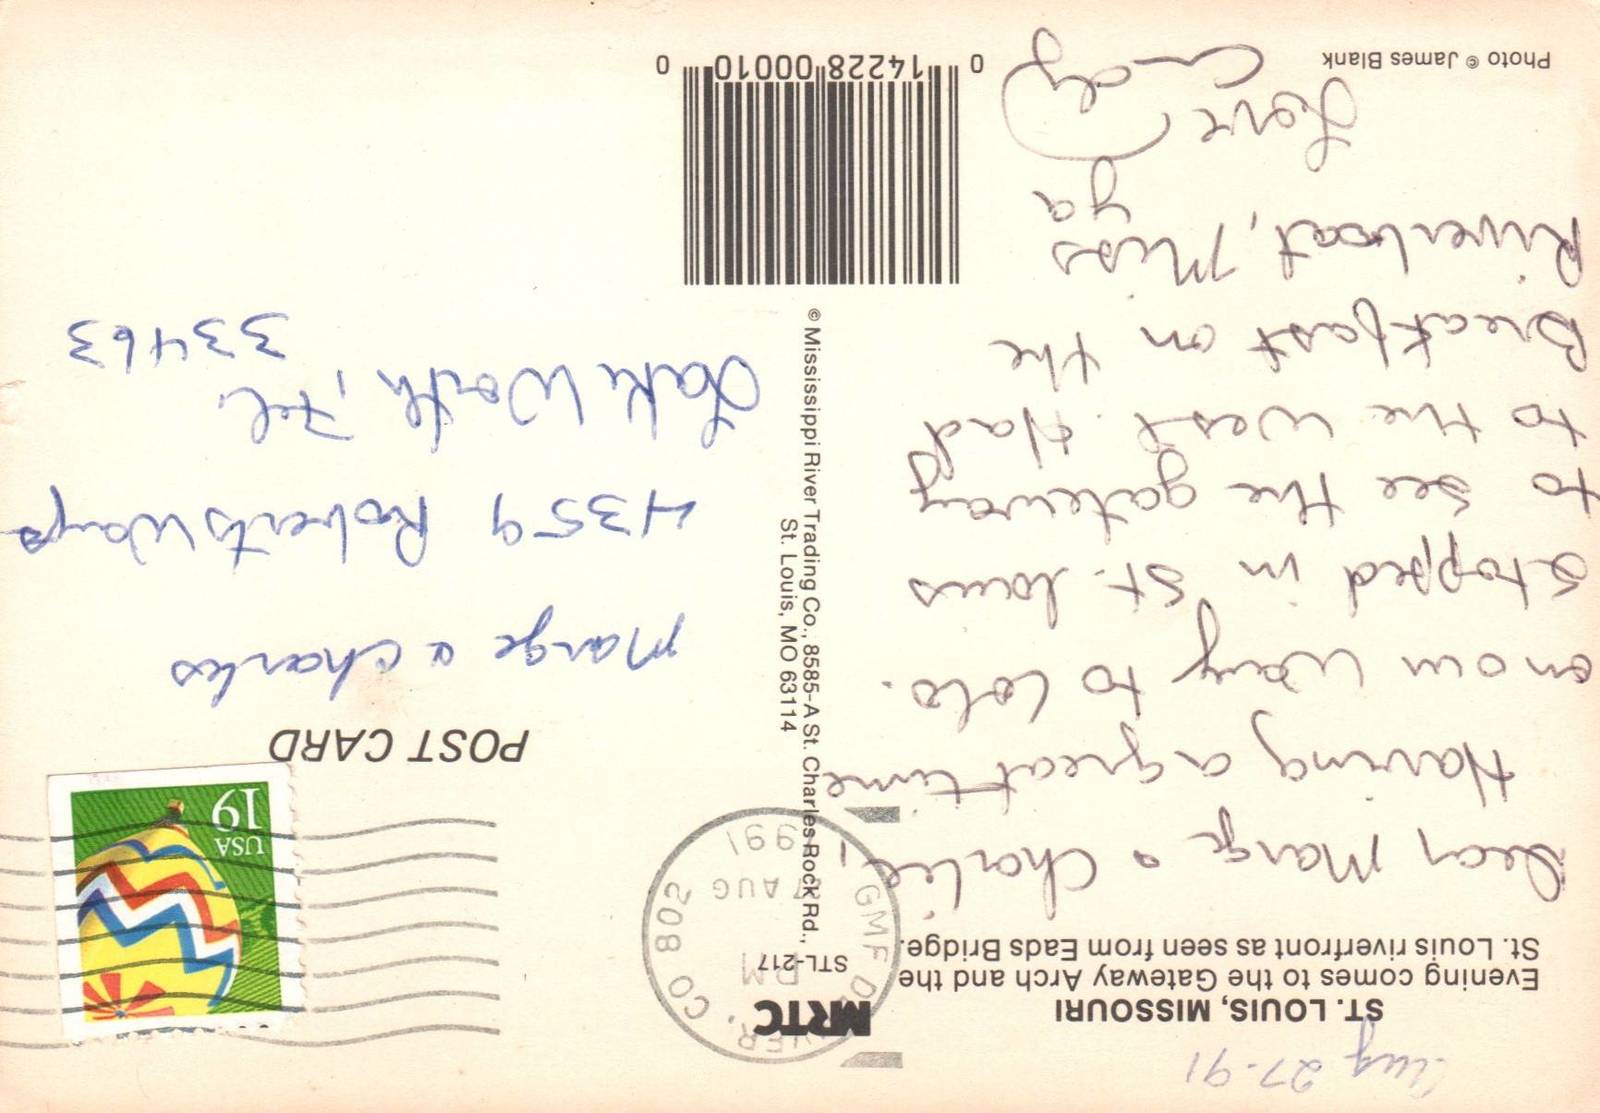 Aug 27-91
ST. LOUIS, MISSOURI
Evening comes to the Gateway Arch and the
St. Louis riverfront as seen from Eads Bridge.
Dear Marge & Charlie,
Having a great time
on our way to Colo.
Stopped in St. Louis
to see the gateway
to the West. Had
Breakfast on the
Riverboat, Miss
ya
Love
Photo © James Blank
MRTC
STL-217
GMF DENVER, CO 802
PM
AUG
1991
© Mississippi River Trading Co., 8585-A St. Charles Rock Rd.,
St. Louis, MO 63114
0 14228 00010 0
USA
19
POST CARD
Marge & Charles
4359 Roberts Way
Lake Worth, Fl.
33463